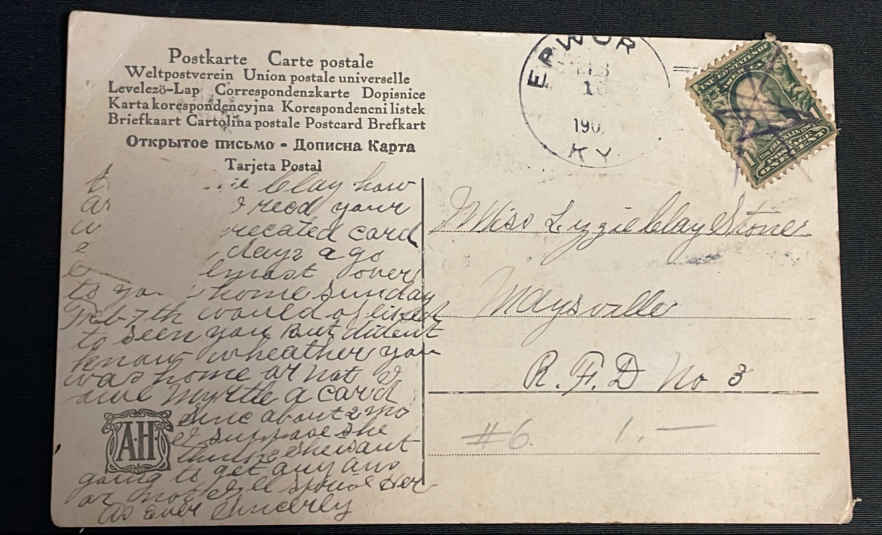 Postkarte Carte postale
Weltpostverein Union postale universelle
Levelezö-Lap Correspondenzkarte Dopisnice
Karta korespondencyjna Korespondencni listek
Briefkaart Cartolina postale Postcard Brefkart
Открытое письмо - Дописна Карта
Tarjeta Postal
EPWOR
190
KY.
Clay how
I recd your
recated card
days ago
lmost over
to you home Sunday
Feb 7th would of liked
to seen you But dident
know wheather you
was home or not I
Myrtle a card
about 2 mo
suppose she
thinks she
going to get any ans
or not
As ever Sincerely
A.H
Miss Lizzie Clay Stoner
Maysville
R. F. D No 3
#6. 1.—